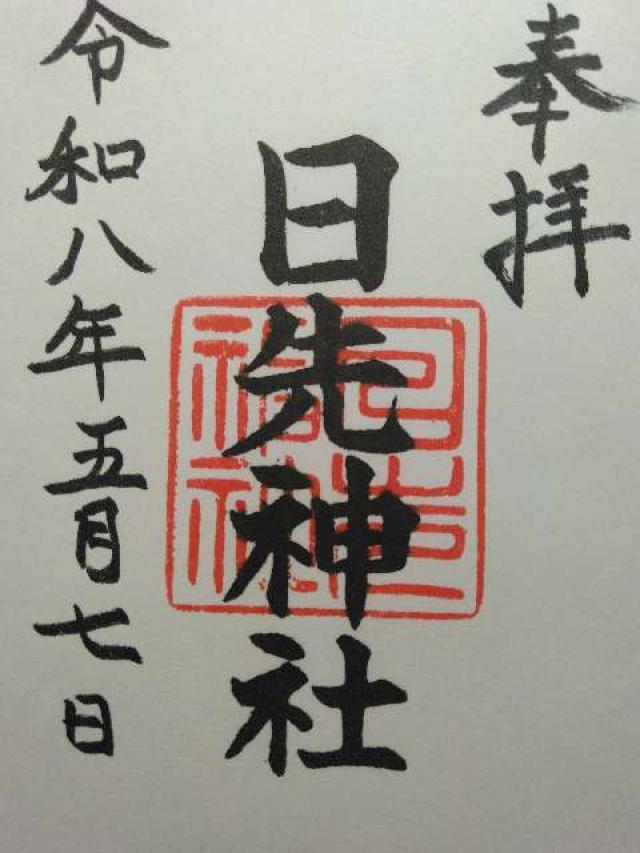 奉拝
日先神社
令和八年五月七日